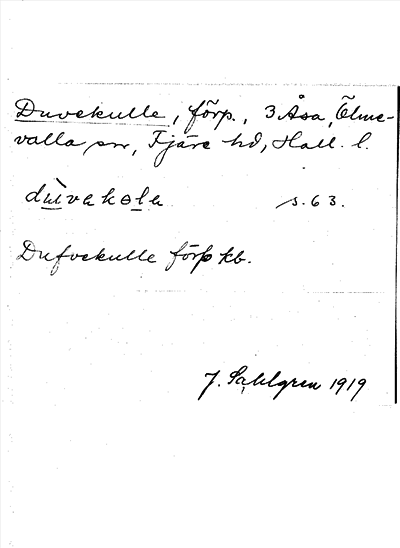 Duvekulle, förp., 3 Åsa, Ölme-
valla sn, Fjäre hd, Hall. l.
dùvekɵlɐ s. 63.
Dufvekulle förp kb.
J. Sahlgren 1919